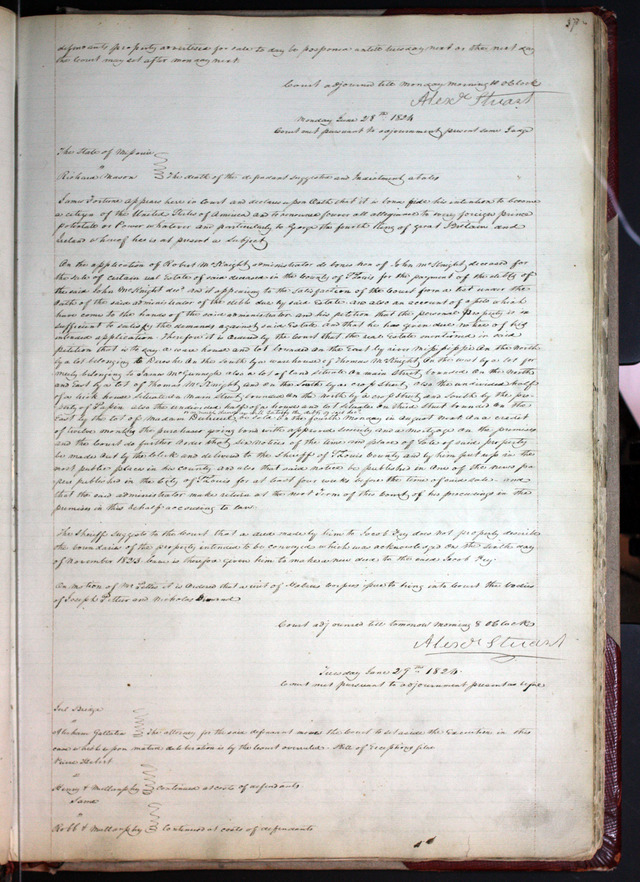 defendants property advertised for sale to day be postponed until tuesday next or the next day
the Court may set after monday next.
Court adjourned till monday morning 10 oClock
Alexr Stuart
Monday June 28th 1824
Court met pursuant to adjournment, present same Judge
The State of Missouri
vs
Richard Mason The death of the defendant suggested and Indictment abates
James Fortune appears here in Court and declares upon Oath that it is bona fide his intention to become
a citizen of the United States of America and to renounce forever all allegiance to every foreign prince
potentate or Power whatever and particularly to George the fourth King of great Britain and
Ireland whereof he is at present a Subject
On the application of Robert McKnight administrator de bonis non of John McKnight deceased for
the sale of certain real Estate of said deceased in the County of St Louis for the payment of the debts of
the said John McKnight decd and it appearing to the satisfaction of the Court from a list under the
Oath of the said administrator of the debts due by said Estate and also an account of assets which
have come to the hands of the said administrator and his petition that the personal property is in
sufficient to satisfy the demands against said Estate and that he has given due notice of his
intended application. Therefore it is ordered by the Court that the real Estate mentioned in said
petition that is to say a house and lot bounded on the East by river Mississippi on the North
by a lot belonging to on the South by a ware house of Thomas McKnight On the west by a lot for
merly belonging to James McGunnegle also a lot of land situate on main Street, bounded On the North
and East by a lot of Thomas McKnight and on the South by a cross Street, also the undivided half
of a brick house situate on Main Street bounded on the North by a cross Street and South by the pro
perty of also the undivided half of a house and lot situate on third Street bounded on the
East by the lot of Madam be sold On the fourth Monday in August next at a credit
of twelve months the purchaser giving bond with approved security and a mortgage on the premises
and the Court do further order that six notices of the time and place of sale of said property
be made out by the Clerk and delivered to the Sheriff of St Louis County and by him put up in the
most public places in his county and also that said notice be published in One of the news pa
pers published in the City of St Louis for at least four weeks before the time of said sale. and
that the said administrator make return at the next Term of this Court of his proceedings in the
premises in this behalf according to law.
The Sheriff suggests to the Court that a deed made by him to Jacob Fry does not properly describe
the boundaries of the property intended to be conveyed which was acknowledged On the day
of November 1823 leave is therefore given him to make a new deed to the said Jacob Fry.
On motion of Mr it is Ordered that a writ of Habeas corpus issue to bring into Court the bodies
of Joseph and Nicholas
Court adjourned till tomorrow morning 8 oClock
Alexr Stuart
Tuesday June 29th 1824
Court met pursuant to adjournment present as before
Joel
vs
Abraham Gallatin The attorney for the said defendant moves the Court to set aside the Execution in this
case which upon mature deliberation is by the Court overruled. Bill of Exceptions filed
Pierre
vs
& Mullanphy Continued at costs of defendants
Same
vs
Robb & Mullanphy Continued at costs of defendants